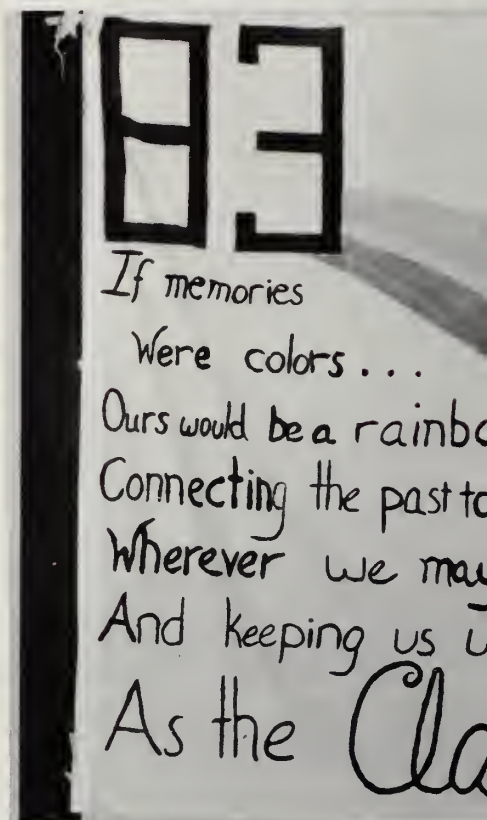 83
If memories
Were colors...
Ours would be a rainbo
Connecting the past to
Wherever we may
And keeping us u
As the Cla